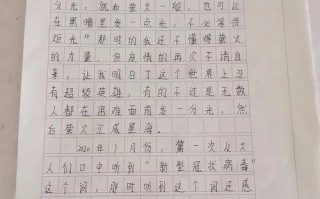 分光，就如萤火一般，也可以
在黑暗里发一点光，不必等候
炬光"那时的我还不懂得萤火
的力量，但疫情的再次不请自
来，让我明白了这个世界上没
有超级英雄，有的不过是无数
人都在困难面前发一分光，然
后萤火汇成星海。
2020年1月份，第一次从大
人们口中听到"新型冠状病毒"
这个词，那时听到这个词还感